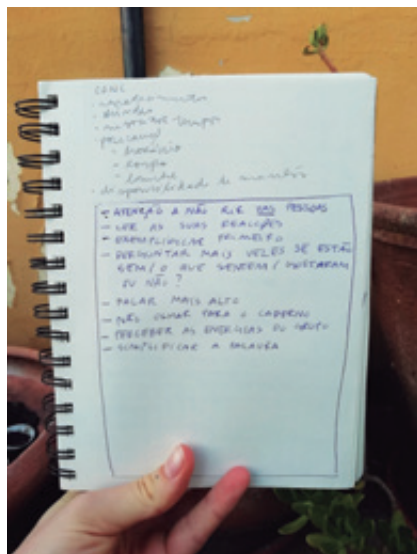 - horário
- roupa
- disponibilidade de manhãs
- ATENÇÃO A NÃO RIR DAS PESSOAS
- LER AS SUAS REAÇÕES
- EXEMPLIFICAR PRIMEIRO
- PERGUNTAR MAIS VEZES SE ESTÃO
BEM / O QUE SENTEM / GOSTARAM
OU NÃO?
- FALAR MAIS ALTO
- NÃO OLHAR PARA O CADERNO
- PERCEBER AS ENERGIAS DO GRUPO
- SIMPLIFICAR A PALAVRA